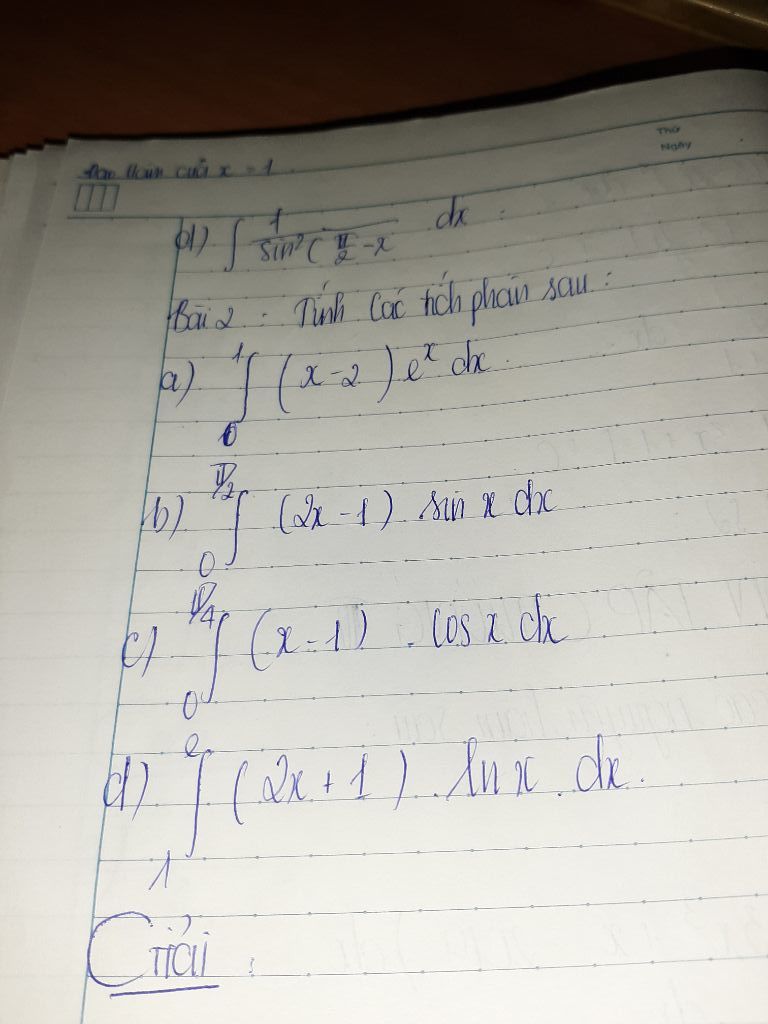 Đạo hàm của x = 1
Thứ
Ngày
d) ∫ 1/sin²( π/2 - x dx .
Bài 2 : Tính các tích phân sau :
a) ∫₀¹ ( x - 2 ) eˣ dx .
b) ∫₀^(π/2) (2x - 1) sin x dx
c) ∫₀^(π/4) (x - 1) . cos x dx
d) ∫₁ᵉ ( 2x + 1 ) . ln x . dx .
Giải :